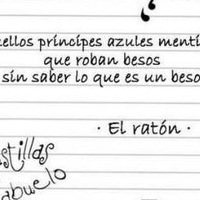 ellos príncipes azules menti
que roban besos
sin saber lo que es un beso
· El ratón ·
stillas
abuelo